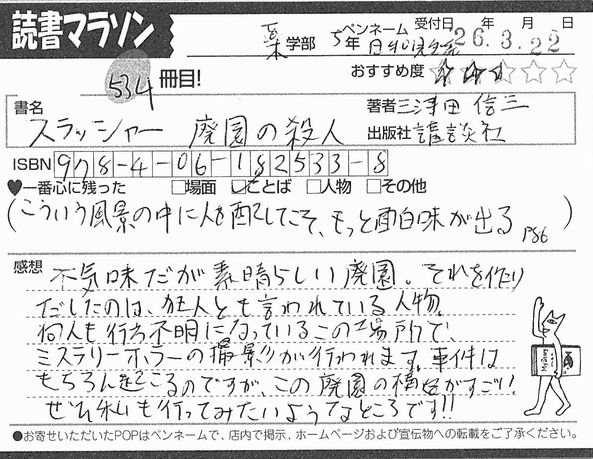 読書マラソン
薬学部 5年 ペンネーム 受付日 26年 3月 22日
534冊目! おすすめ度
書名 スラッシャー 廃園の殺人
著者 三津田信三
出版社 講談社
ISBN 978-4-06-182533-8
♥一番心に残った □場面 ☑ことば □人物 □その他
(こういう風景の中に人を配してこそ、もっと面白味が出る P86)
感想 不気味だが素晴らしい廃園。それを作り
だしたのは、狂人とも言われている人物。
何人も行方不明になっているこの場所で、
ミステリーホラーの撮影が行われます。事件は
もちろん起こるのですが、この廃園の構図がすごい!
ぜひ私も行ってみたいようなところです!!
●お寄せいただいたPOPはペンネームで、店内で掲示、ホームページおよび宣伝物への転載をご了承ください。